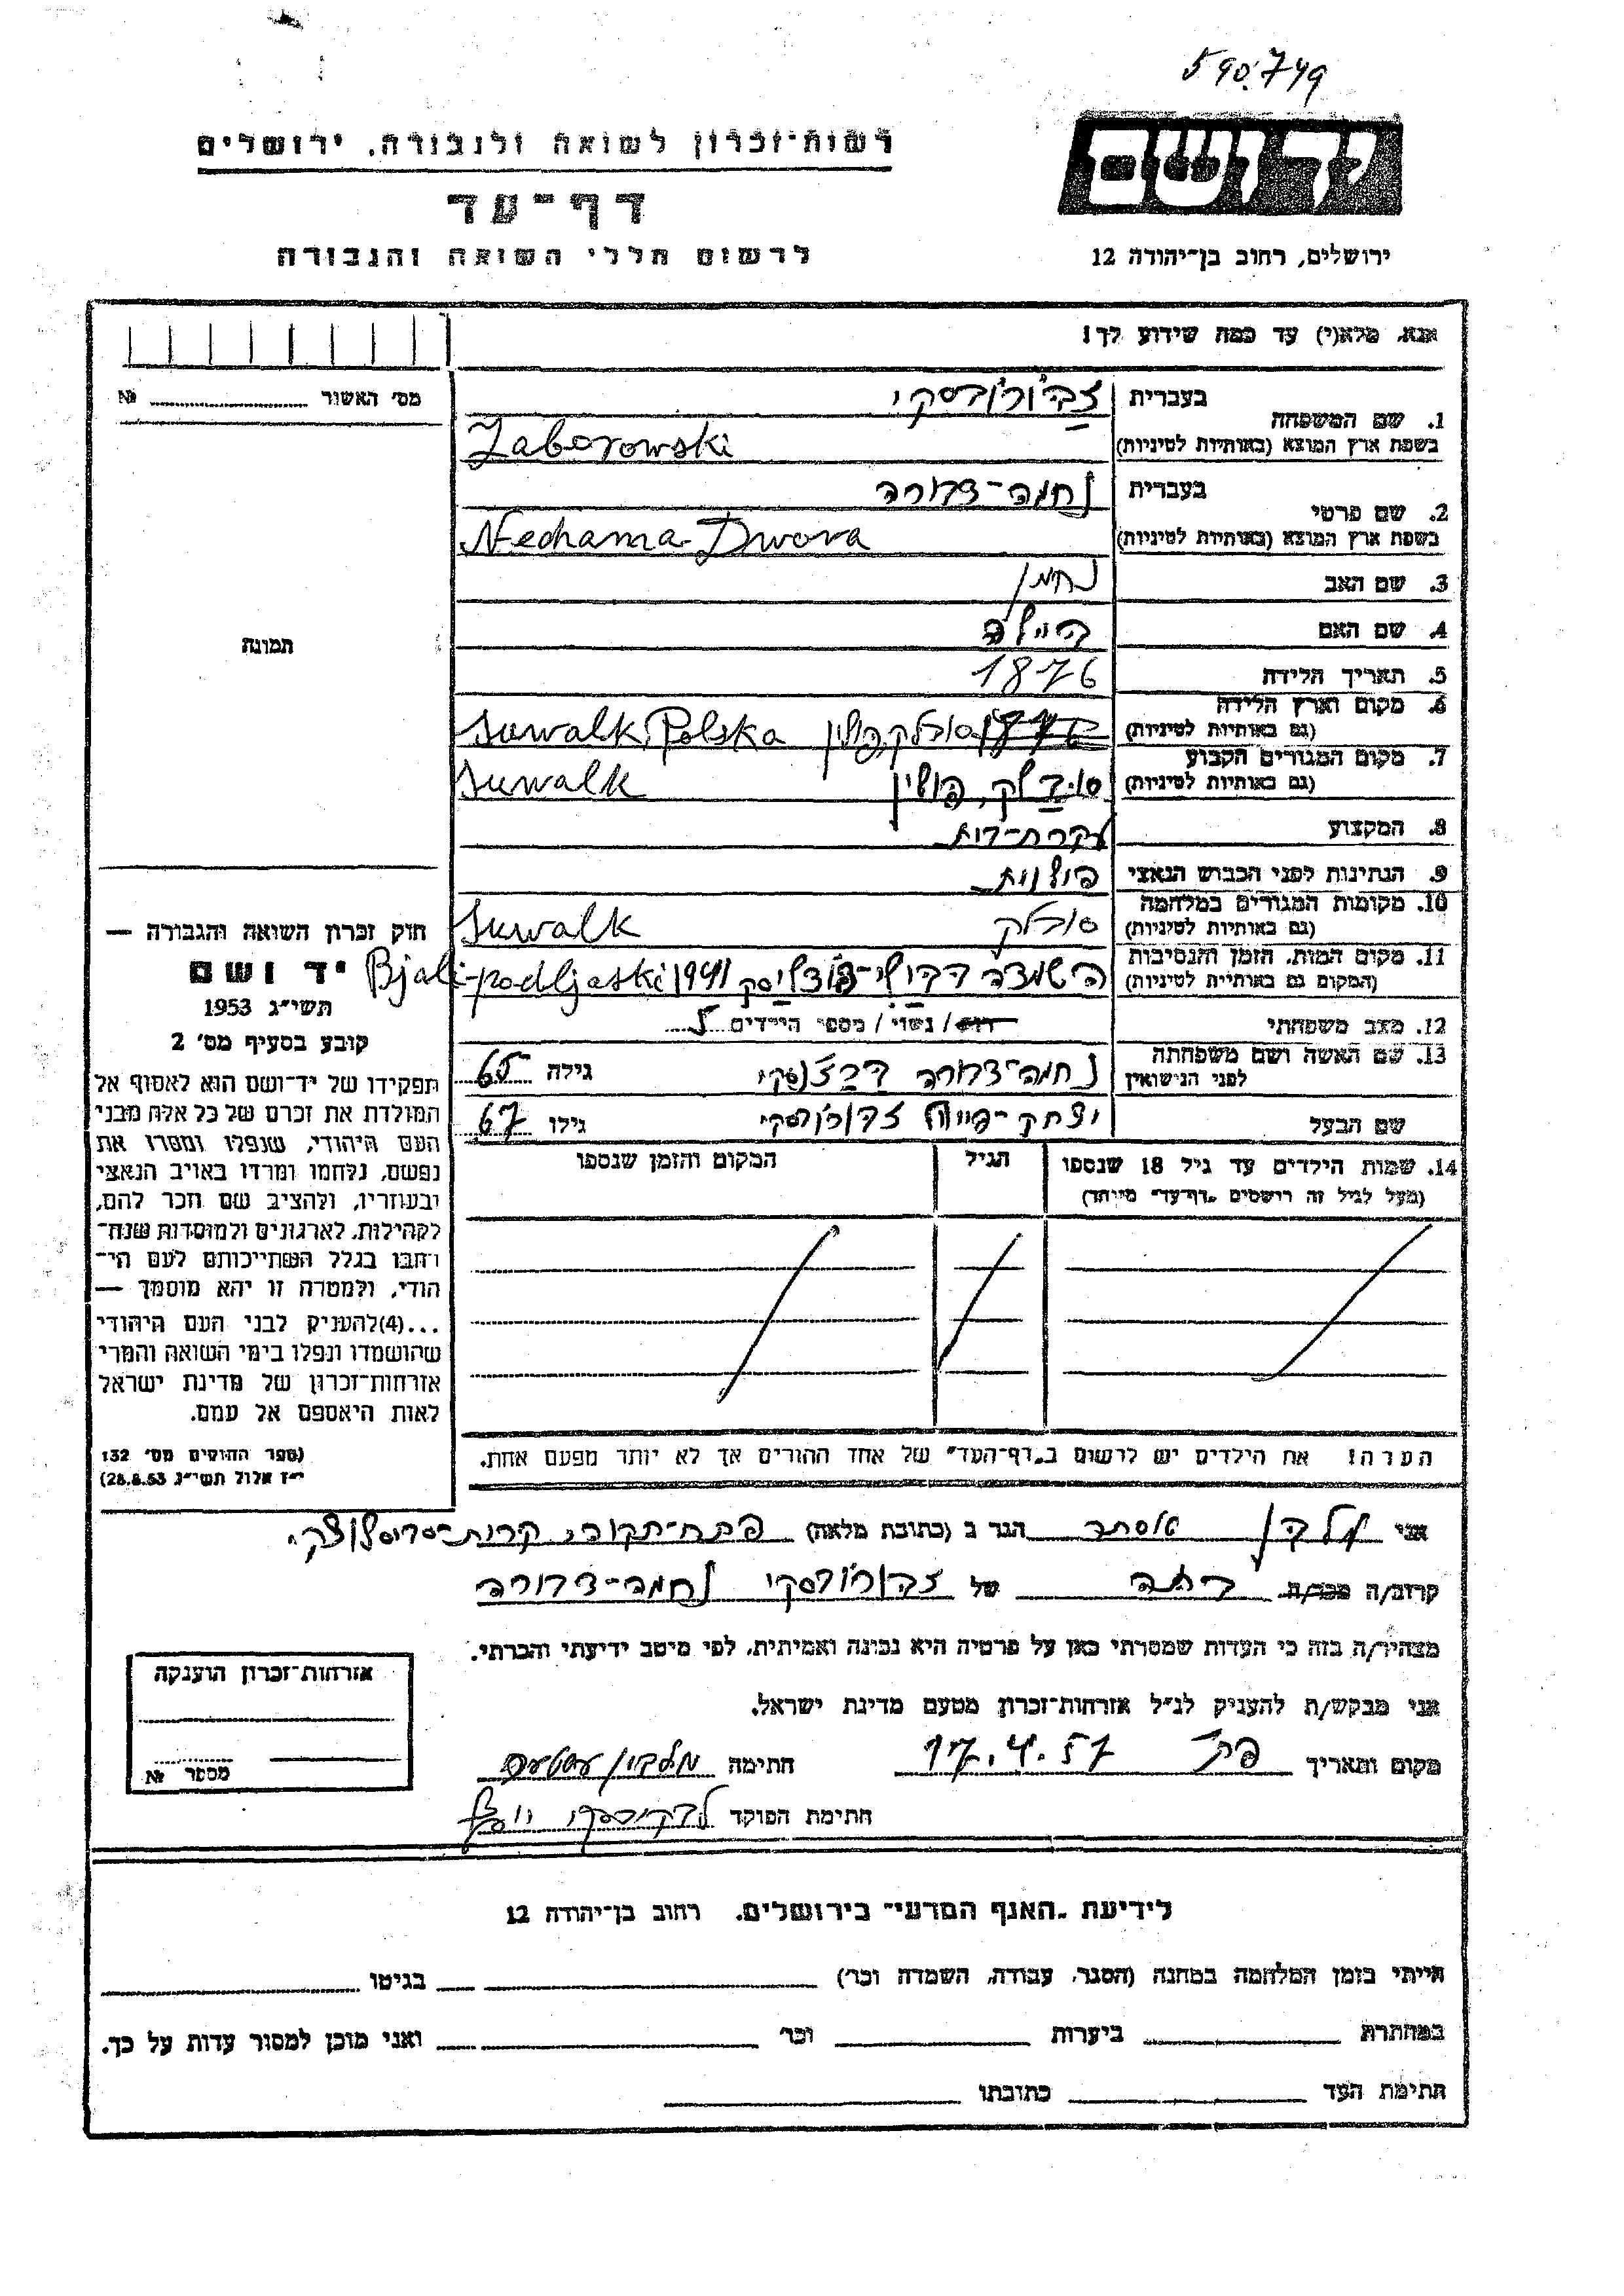 590.749
יד ושם
רשות־זכרון לשואה ולגבורה, ירושלים
דף־עד
לרשום חללי השואה והגבורה
ירושלים, רחוב בן־יהודה 12
אנא, מלא(י) עד כמה שידוע לך!
מס׳ האשור № 
1. שם המשפחה בעברית זבורובסקי
בשפת ארץ המוצא (באותיות לטיניות) Zaborowski
2. שם פרטי בעברית נחמה-דבורה
בשפת ארץ המוצא (באותיות לטיניות) Nechama-Dwora
3. שם האב נחמן
4. שם האם
תמונה
5. תאריך הלידה 1876
6. מקום וארץ הלידה (גם באותיות לטיניות) סובלק, פולין Suwalk, Polska
7. מקום המגורים הקבוע (גם באותיות לטיניות) סובלק, פולין Suwalk
8. המקצוע עקרת-בית
9. הנתינות לפני הכבוש הנאצי פולנית
10. מקומות המגורים במלחמה (גם באותיות לטיניות) סובלק Suwalk
11. מקום המות, הזמן והנסיבות (המקום גם באותיות לטיניות) 1941 Bjali-podljaski
12. מצב משפחתי רווק / נשוי / מספר הילדים 5
13. שם האשה ושם משפחתה לפני הנישואין נחמה-דבורה גילה 65
שם הבעל יצחק- זבורובסקי גילו 67
14. שמות הילדים עד גיל 18 שנספו הגיל המקום והזמן שנספו
(מעל לגיל זה רושמים „דף־עד״ מיוחד)
הערה! את הילדים יש לרשום ב„דף־העד״ של אחד ההורים אך לא יותר מפעם אחת.
חוק זכרון השואה והגבורה —
יד ושם
תשי״ג 1953
קובע בסעיף מס׳ 2
תפקידו של יד־ושם הוא לאסוף אל
המולדת את זכרם של כל אלה מבני
העם היהודי, שנפלו ומסרו את
נפשם, נלחמו ומרדו באויב הנאצי
ובעוזריו, ולהציב שם וזכר להם,
לקהילות, לארגונים ולמוסדות שנח־
רבו בגלל השתייכותם לעם הי־
הודי, ולמטרה זו יהא מוסמך —
...(4)להעניק לבני העם היהודי
שהושמדו ונפלו בימי השואה והמרי
אזרחות־זכרון של מדינת ישראל
לאות היאספם אל עמם.
(ספר החוקים מס׳ 132
י״ז אלול תשי״ג 28.8.53)
אני אסתר הגר ב (כתובת מלאה) פתח-תקוה, קרית-
קרוב/ה מכר/ה בתה של זבורובסקי נחמה-דבורה
מצהיר/ה בזה כי העדות שמסרתי כאן על פרטיה היא נכונה ואמיתית, לפי מיטב ידיעתי והכרתי.
אני מבקש/ת להעניק לנ״ל אזרחות־זכרון מטעם מדינת ישראל.
מקום ותאריך פ״ת 17.4.57 חתימה
חתימת הפוקד
אזרחות־זכרון הוענקה
מספר №
לידיעת „האגף המדעי״ בירושלים, רחוב בן־יהודה 12
הייתי בזמן המלחמה במחנה (הסגר, עבודה, השמדה וכר׳) בגיטו
במחתרת ביערות וכר׳ ואני מוכן למסור עדות על כך.
חתימת העד כתובתו